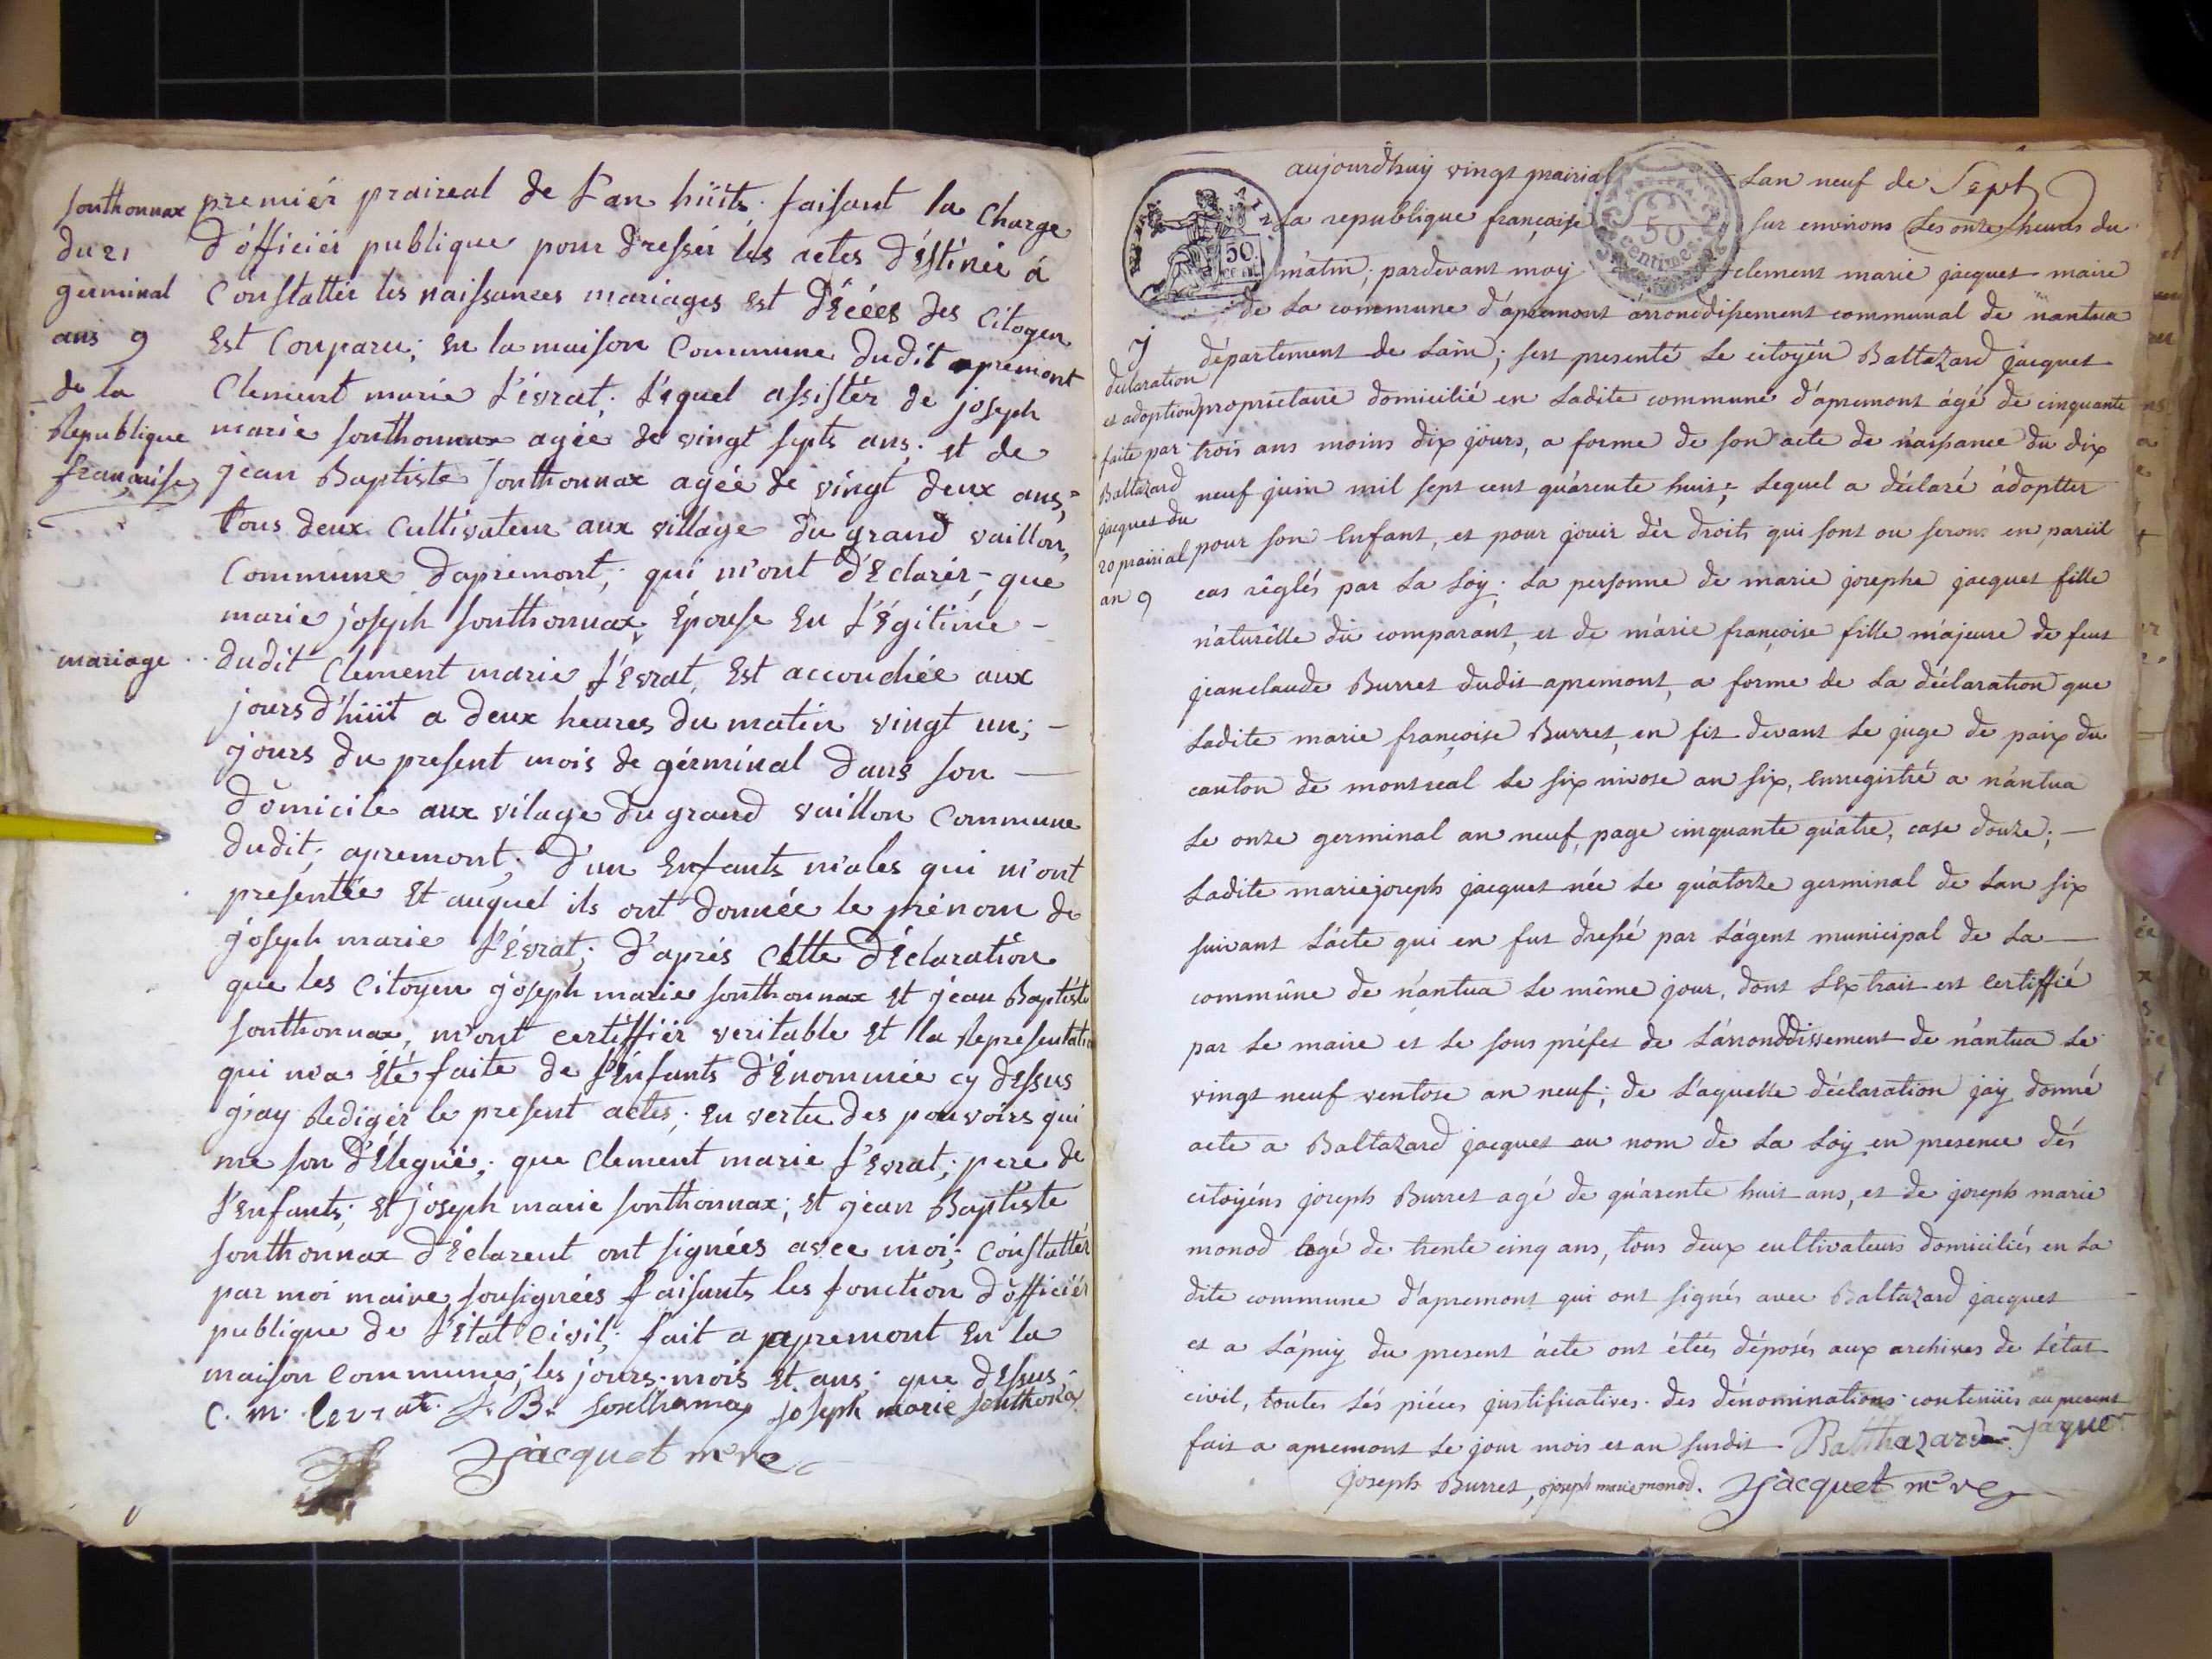 Sonthonnax
du 21
germinal
ans 9
de la
Republique
francaise
mariage
premiér praireal de l'an hüits; faisant la charge
d'officiér publique pour dressér les actes d'éstinéé á
Constattér les naissances mariages est d'éćées des Citoyen
Est Conparu; en la maison Commune dudit apremont
Clement marie l'évrat; l'equel assistér de joseph
marie sonthonnax agée de vingt septs ans; et de
jean Baptiste sonthonnax agéé de vingt deux ans;
tous deux Cultivateur aux village du grand vaillon,
Commune d'apremont; qui m'ont d'Eclarér - que
marie joseph sonthonnax, épouse En l'égitime -
dudit Clement marie l'Evrat, Est accouchée aux
jours d'hüit a deux heures du matin vingt un; -
jours du present mois de gérminal dans son -
dómicile aux vilage du grand vaillon Commune
dudit; apremont; d'un Enfants males qui m'ont
presentée Et auquel ils ont donnée le prénom de
joseph marie l'évrat; d'aprés Cette d'Eclaration
que les Citoyen joseph marie sonthonnax Et jean Baptiste
sonthonnax, m'ont certiffiér veritable Et la Representatio
qui m'a Eté faite de l'Enfants d'Enommée cy dessus
j'ay Redigér le present actes; en vertu des pouvoirs qui
me son d'Elegué; que Clement marie l'Evrat; pere de
l'Enfants; Et joseph marie sonthonnax; Et jean Baptiste
sonthonnax d'Eclarent ont signées avec moi; Constattér
par moi maire sousignées faisants les fonction d'officiér
publique de l'état Civil; fait a apremont En la
maison Commune; les jours mois Et ans que dessus
C. m. levrat J. B. Sonthonax joseph marie Sonthonax
Jacquet mre
50
centimes
aujourdhuy vingt prairial lan neuf de Sept
la republique française sur environs les onze heures du
matin; pardevant moy clement marie jacquet maire
de la commune d'apremont arronddissement communal de nantua
département de lain; sest presenté le citoyén Baltazard jacquet
J
declaration
et adoption
faite par
Baltazard
jacquet du
20 prairial
an 9
proprietaire domicilié en ladite commune d'apremont ágé de cinquante
trois ans moins dix jours, a forme de son acte de naissance du dix
neuf juin mil sept cent quarente huit; lequel a déclaré adoptter
pour son Enfant, et pour jouir dér droits qui sont ou seront en pareil
cas réglés par la loy; la personne de marie josephe jacquet fille
naturelle du comparant, et de marie françoise fille majeure de feut
jeanclaude Burret dudit apremont, a forme de la déclaration que
ladite marie françoise Burret, en fit devant le juge de paix du
canton de montreal le six nivose an six, Enregistré a nantua
le onze germinal an neuf, page cinquante quatre, case douze; -
ladite mariejoseph jacquet née le quatorze germinal de lan six
suivant lácte qui en fut dressé par lágent municipal de la -
commune de nantua le même jour, dont lExtrait est Certiffié
par le maire et le sous préfet de lárronddissement de nantua le
vingt neuf ventose an neuf; de laquelle déclaration jay donné
acte a Baltazard jacquet au nom de la loy en presence dés
citoyéns joseph Burret agé de quarente huit ans, et de joseph marie
monod agé de trente cinq ans, tous deux cultivateurs domiciliés en la
dite commune d'apremont qui ont signés avec Baltazard jacquet
et a lápuy du present ácte ont étées déposés aux archives de létat
civil, toutes lés piéces justificatives des dénominations contenües au present
fait a apremont le jour mois et an susdit Balthazard Jaquet
joseph Burret, joseph marie monod. Jacquet mre